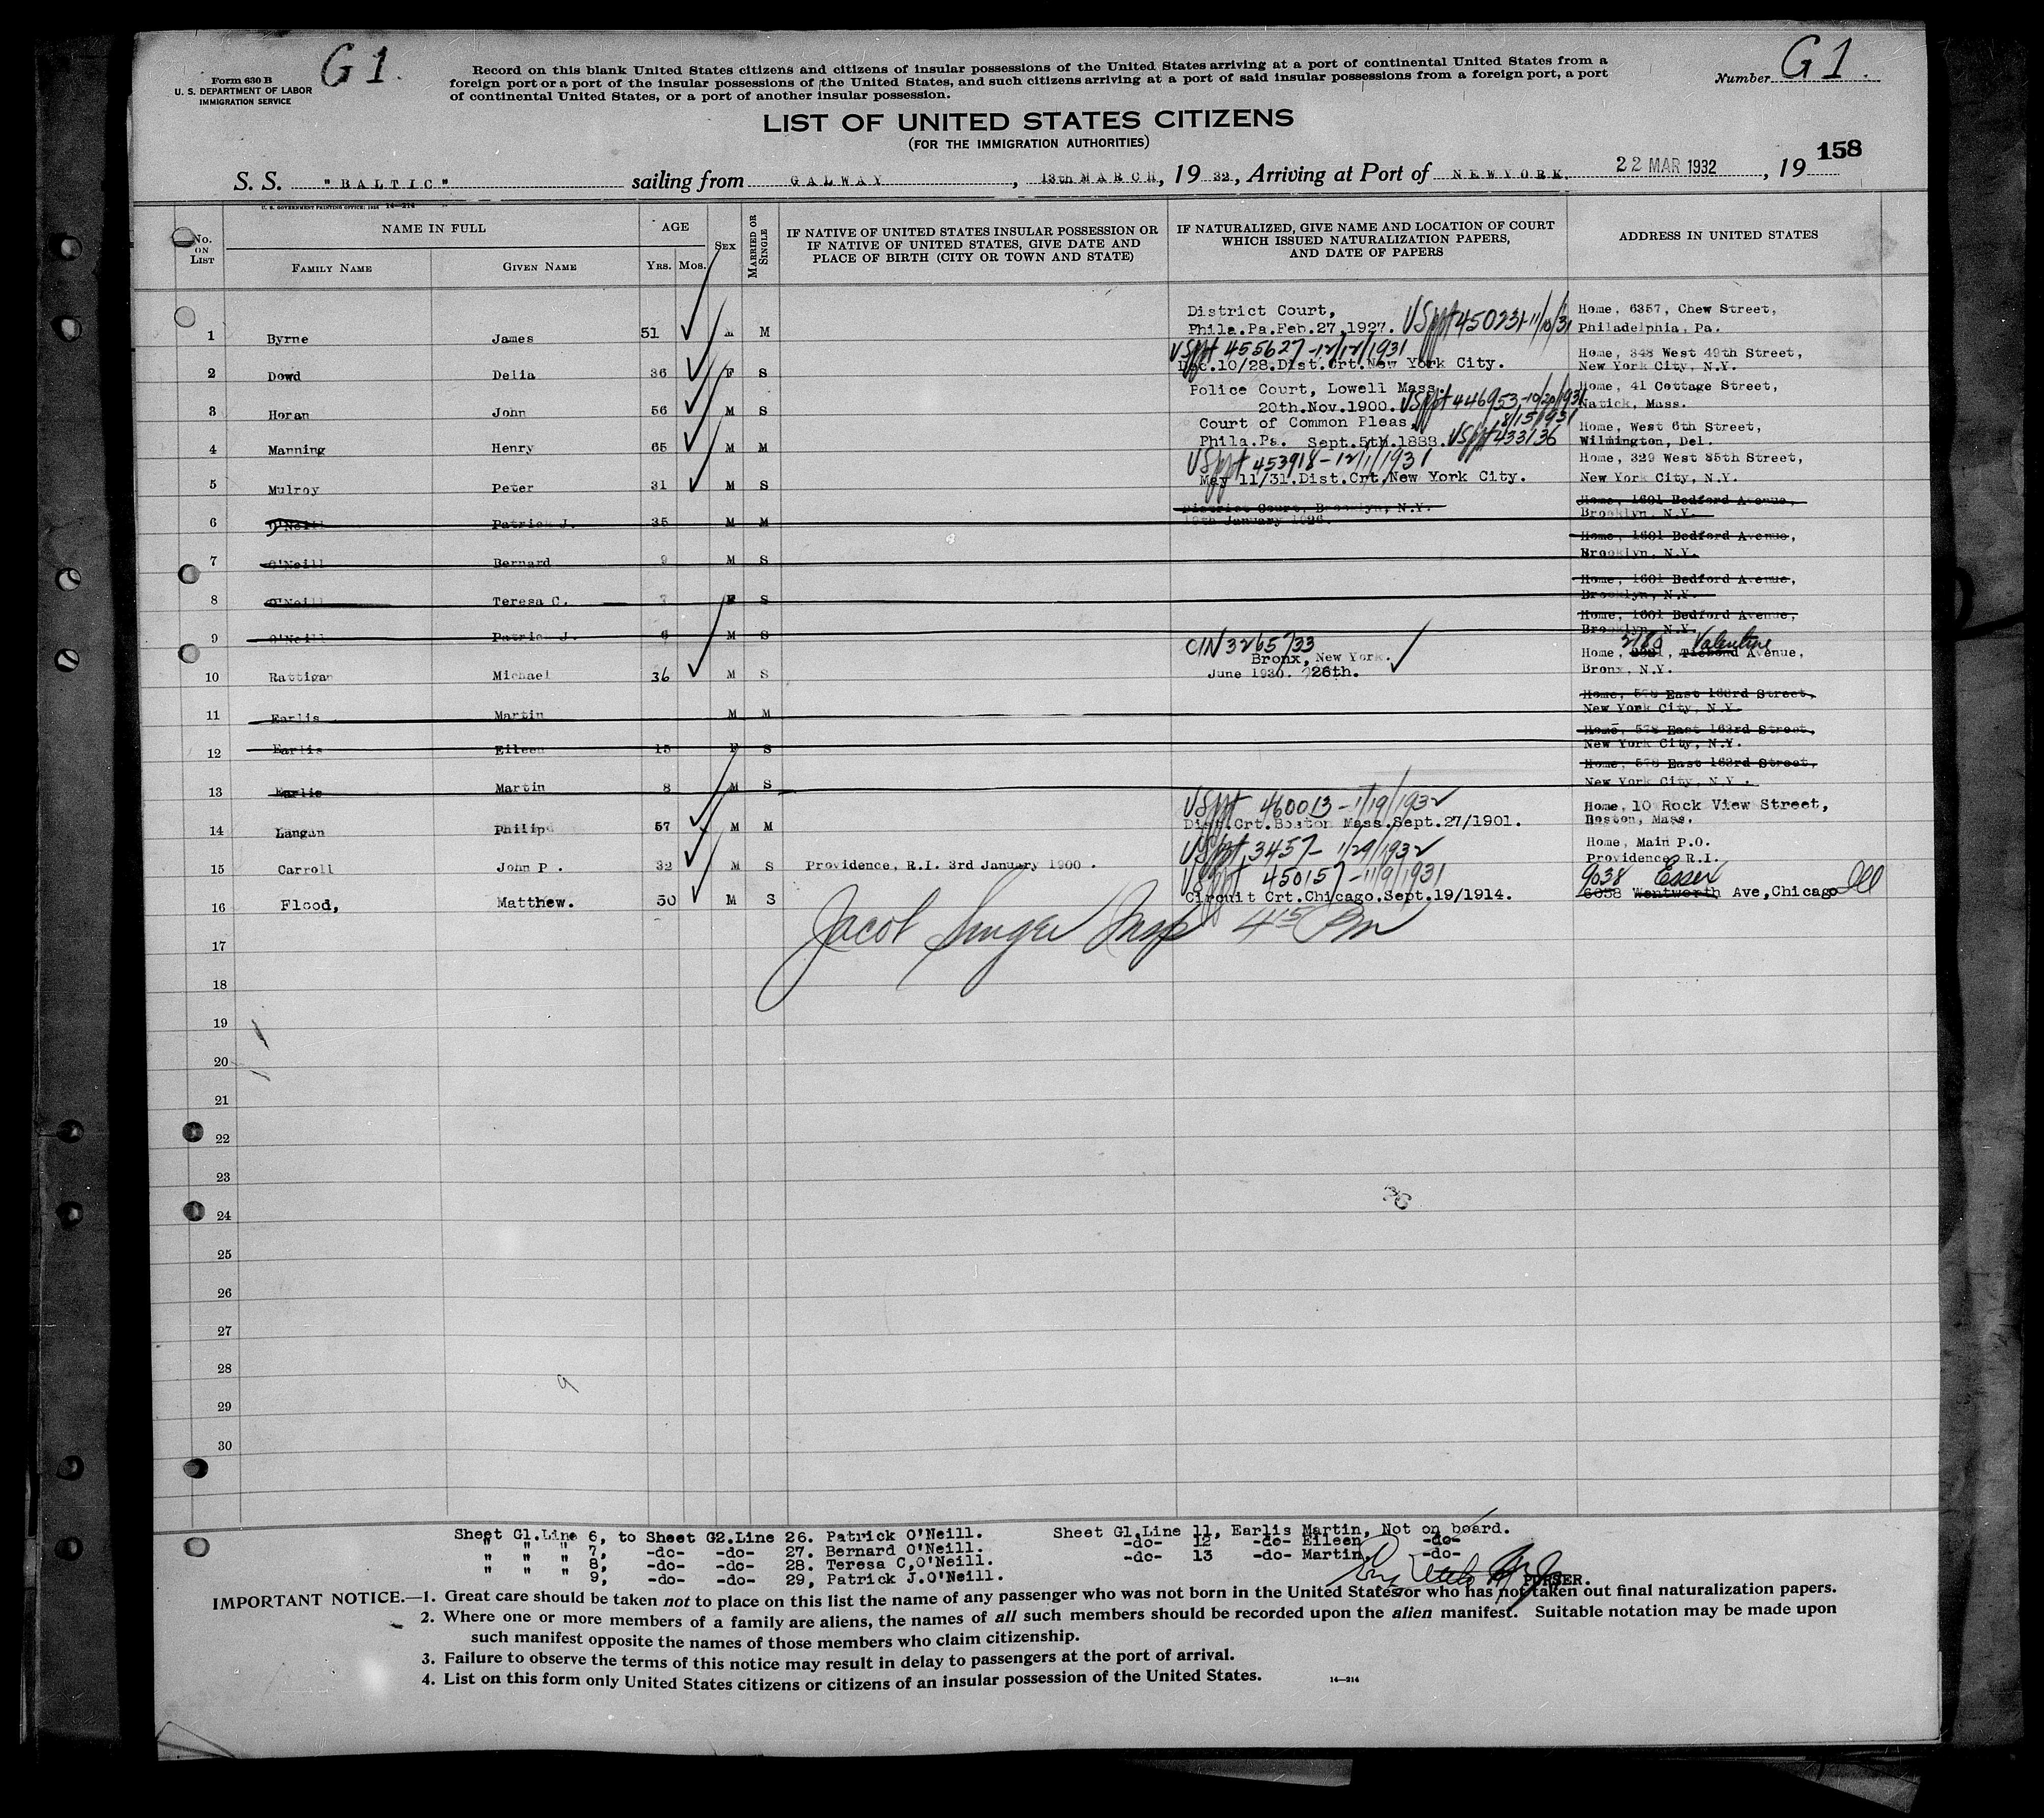 G1.
Form 630 B
U. S. DEPARTMENT OF LABOR
IMMIGRATION SERVICE
Record on this blank United States citizens and citizens of insular possessions of the United States arriving at a port of continental United States from a
foreign port or a port of the insular possessions of the United States, and such citizens arriving at a port of said insular possessions from a foreign port, a port
of continental United States, or a port of another insular possession.
Number G1.
LIST OF UNITED STATES CITIZENS
(FOR THE IMMIGRATION AUTHORITIES)
158
S. S. "BALTIC" sailing from GALWAY, 13th MARCH, 1932, Arriving at Port of NEWYORK. 22 MAR 1932, 19
U. S. GOVERNMENT PRINTING OFFICE: 1928 14—214
No. ON LIST
NAME IN FULL
FAMILY NAME
GIVEN NAME
AGE
YRS. MOS.
SEX
MARRIED OR SINGLE
IF NATIVE OF UNITED STATES INSULAR POSSESSION OR
IF NATIVE OF UNITED STATES, GIVE DATE AND
PLACE OF BIRTH (CITY OR TOWN AND STATE)
IF NATURALIZED, GIVE NAME AND LOCATION OF COURT
WHICH ISSUED NATURALIZATION PAPERS,
AND DATE OF PAPERS
ADDRESS IN UNITED STATES
District Court, Home, 6357, Chew Street,
1 Byrne James 51 M M Phila.Pa.Feb.27,1927. USppt 450231-11/10/31 Philadelphia, Pa.
USppt 455627-12/12/1931 Home, 348 West 49th Street,
2 Dowd Delia 36 F S Dec.10/28.Dist.Crt.New York City. New York City, N.Y.
Police Court, Lowell Mass. Home, 41 Cottage Street,
3 Horan John 56 M S 20th.Nov.1900. USppt 446953-10/20/931 Natick, Mass.
Court of Common Pleas, 8/15/931 Home, West 6th Street,
4 Manning Henry 65 M M Phila.Pa. Sept.5th.1888. USppt 433136 Wilmington, Del.
USppt 453918-12/1/1931 Home, 329 West 85th Street,
5 Mulroy Peter 31 M S May 11/31.Dist.Crt.New York City. New York City, N.Y.
District Court, Brooklyn, N.Y. Home, 1601 Bedford Avenue,
6 O'Neill Patrick J. 35 M M January 1926. Brooklyn, N.Y.
Home, 1601 Bedford Avenue,
7 O'Neill Bernard 9 M S Brooklyn, N.Y.
Home, 1601 Bedford Avenue,
8 O'Neill Teresa C. 7 F S Brooklyn, N.Y.
Home, 1601 Bedford Avenue,
9 O'Neill Patrick J. 6 M S Brooklyn, N.Y.
C/N 3265733 2180 Valentine
Bronx, New York. Home, Avenue,
10 Rattigan Michael 36 M S June 1930. 26th. Bronx, N.Y.
Home, 578 East 163rd Street,
11 Earlis Martin M M New York City, N.Y.
Home, 578 East 163rd Street,
12 Earlis Eileen 15 F S New York City, N.Y.
Home, 578 East 163rd Street,
13 Earlis Martin 8 M S New York City, N.Y.
USppt 460013-1/19/1932 Home, 10 Rock View Street,
14 Langan Philip 57 M M Dist.Crt.Boston Mass.Sept.27/1901. Boston, Mass.
USppt 3457-1/29/1932 Home, Main P.O.
15 Carroll John P. 32 M S Providence, R.I. 3rd January 1900. Providence, R.I.
USppt 450157-11/9/1931 9038 Essex
16 Flood, Matthew. 50 M S Circuit Crt.Chicago.Sept.19/1914. 6038 Wentworth Ave,Chicago Ill
Jacob Singer Insp 4 15 Pm
17
18
19
20
21
22
23
24
25
26
27
28
29
30
Sheet G1.Line 6, to Sheet G2.Line 26. Patrick O'Neill. Sheet G1.Line 11, Earlis Martin, Not on board.
" " " 7, -do- -do- 27. Bernard O'Neill. -do- 12 -do- Eileen -do-
" " " 8, -do- -do- 28. Teresa C,O'Neill. -do- 13 -do- Martin, -do-
" " " 9, -do- -do- 29, Patrick J.O'Neill.
PURSER.
IMPORTANT NOTICE.—1. Great care should be taken not to place on this list the name of any passenger who was not born in the United States or who has not taken out final naturalization papers.
2. Where one or more members of a family are aliens, the names of all such members should be recorded upon the alien manifest. Suitable notation may be made upon
such manifest opposite the names of those members who claim citizenship.
3. Failure to observe the terms of this notice may result in delay to passengers at the port of arrival.
4. List on this form only United States citizens or citizens of an insular possession of the United States.
14—214